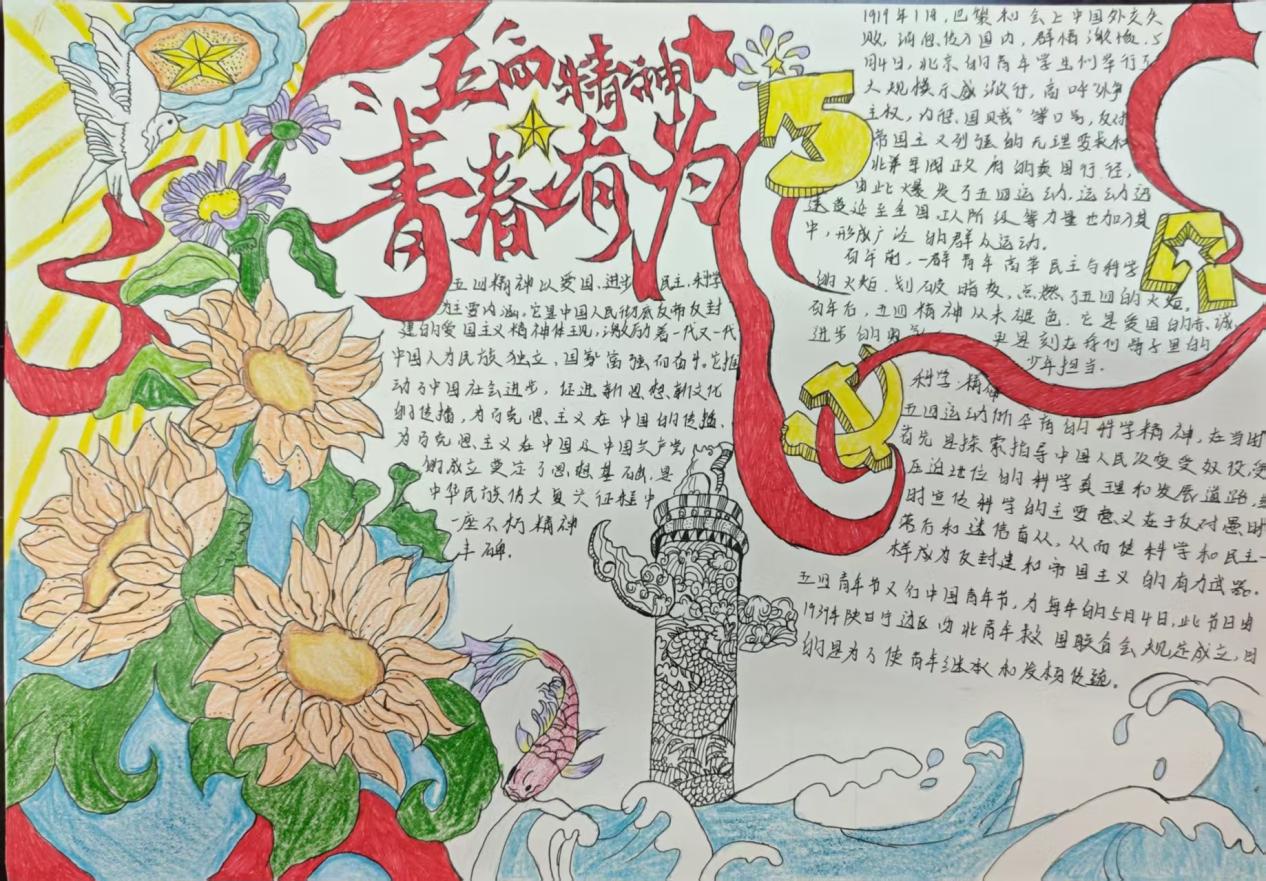 五四精神
青春有为
五四精神以爱国、进步、民主、科学
为主要内涵。它是中国人民彻底反帝反封
建的爱国主义精神体现，激励着一代又一代
中国人为民族独立、国家富强而奋斗。它推
动了中国社会进步，促进新思想、新文化
的传播，为马克思主义在中国的传播，
为马克思主义在中国及中国共产党
的成立奠定了思想基础，是
中华民族伟大复兴征程中
一座不朽精神
丰碑。
5
1919年1月，巴黎和会上中国外交失
败，消息传入国内，群情激愤。5
月4日，北京的青年学生们举行了
大规模示威游行，高呼“外争
主权，内惩国贼”等口号，反对
帝国主义列强的无理要求和
北洋军阀政府的卖国行径，
由此爆发了五四运动，运动迅
速蔓延至全国，工人阶级等力量也加入其
中，形成广泛的群众运动。
百年前，一群青年高举民主与科学
的火炬，划破暗夜，点燃了五四的火炬。
百年后，五四精神从未褪色。它是爱国的赤诚
进步的勇 更是刻在我们骨子里的
少年担当。
科学精神
五四运动所孕育的科学精神，在当时
首先是探索指导中国人民改变受奴役、受
压迫地位的科学真理和发展道路，
时宣传科学的主要意义在于反对愚昧
和迷信盲从，从而使科学和民主一
样成为反封建和帝国主义的有力武器。
五四青年节又名中国青年节，为每年的5月4日，此节日由
1939年陕甘宁边区西北青年救国联合会规定成立，目
的是为了使青年继承和发扬传统。